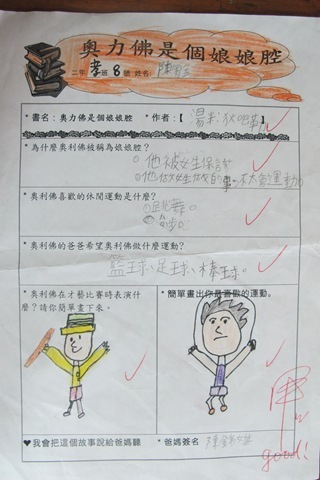 奧力佛是個娘娘腔
二年孝班8號 姓名: 陳
*書名:奧力佛是個娘娘腔 *作者:【湯米狄咆
*為什麼奧利佛被稱為娘娘腔?
他被女生保護
他做女生做的事、不太會運動。
*奧利佛喜歡的休閒運動是什麼?
跳舞。
散步。
*奧利佛的爸爸希望奧利佛做什麼運動?
籃球、足球、棒球。
*奧利佛在才藝比賽時表演什
麼?請你簡單畫下來。
*簡單畫出你最喜歡的運動。
♥我會把這個故事說給爸媽聽
*爸媽簽名 陳
good!